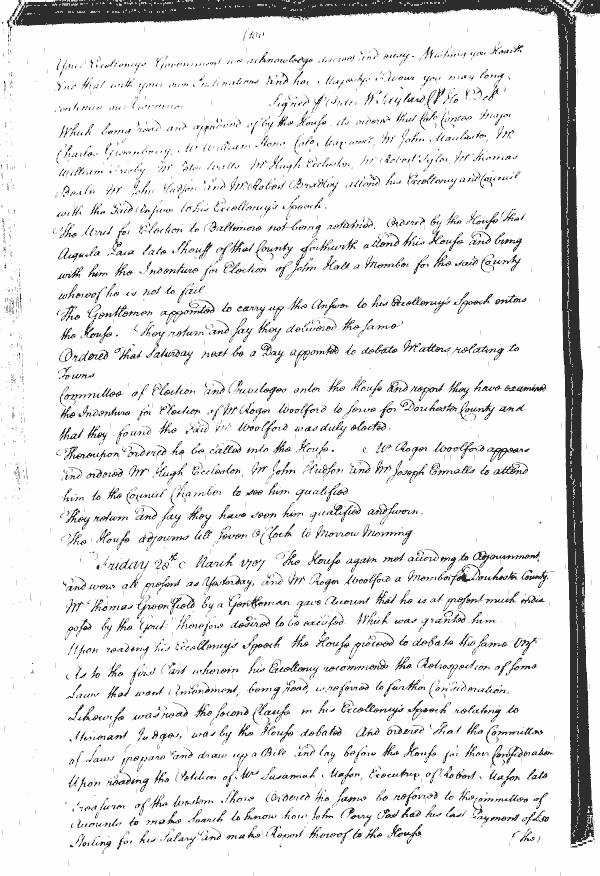 Your Excellency's Government we acknowledge and easy. Wishing you Health
And that with your own Inclinations and her Majestys Favour you may long
continue our Governor Signed W Taylard Cl Ho Del
Which being read and approved of by the House, its ordered that Colo Contee Major
Charles Greenberry, Mr William Mr John Macclaster, Mr
William Frisby Mr John Wells Mr Hugh Eccleston, Mr Robert Tyler Mr Thomas
Beale Mr John Hudson and Mr Robert Bradley attend his Excellency and Council
with the Said Answer to his Excellency's Speech.
The Writ for Election to Baltimore not being returned. Ordered by the House that
Aquila Paca late Sheriff of that County forthwith attend this House and bring
with him the Indenture for Election of John Hall a Member for the said County
whereof he is not to fail
The Gentlemen appointed to carry up the Answer to his Excellency's Speech enters
the House. They return and say they delivered the same
Ordered That Saturday next be a Day appointed to debate Matters relating to
Towns
Committee of Election and Privileges enter the House and report they have examined
the Indenture for Election of Mr Roger Woolford to serve for Dorchester County and
that they found the Said Mr Woolford was duly elected.
Thereupon ordered he be called into the House. Mr Roger Woolford appears
and ordered Mr Hugh Eccleston, Mr John Hudson and Mr Joseph Ennalls to attend
him to the Council Chamber to see him qualified
They return and say they have seen him qualified and sworn.
The House adjourns till Seven O Clock to Morrow Morning
Friday 28th March 1707 The House again met according to Adjournment,
and were all present as Yesterday, and Mr Roger Woolford a Member for Dorchester County.
Mr Thomas Greenfield by a Gentleman gave Account that he is at present much indis
posed by the Gout: therefore desired to be excused Which was granted him
Upon reading his Excellency's Speech the House proceed to debate the same Vizt
As to the first Part wherein his Excellency recommends the Retrospection of some
Laws that want Amendment, being read, is referred to further Consideration.
Likewise was read the second Clause in his Excellency's Speech relating to
Itinerant Judges, was by the House debated And ordered That the Committee
of Laws prepare and draw up a Bill and lay before the House for their Consideration
Upon reading the Petition of Mrs Susannah Mason, Executrix of Robert Mason late
Treasurer of the Western Shore Ordered the same be referred to the committee of
Accounts to make Search to know how John Perry Post had his last Payment of
Sterling for his Salary and make Report thereof to the House
(The)